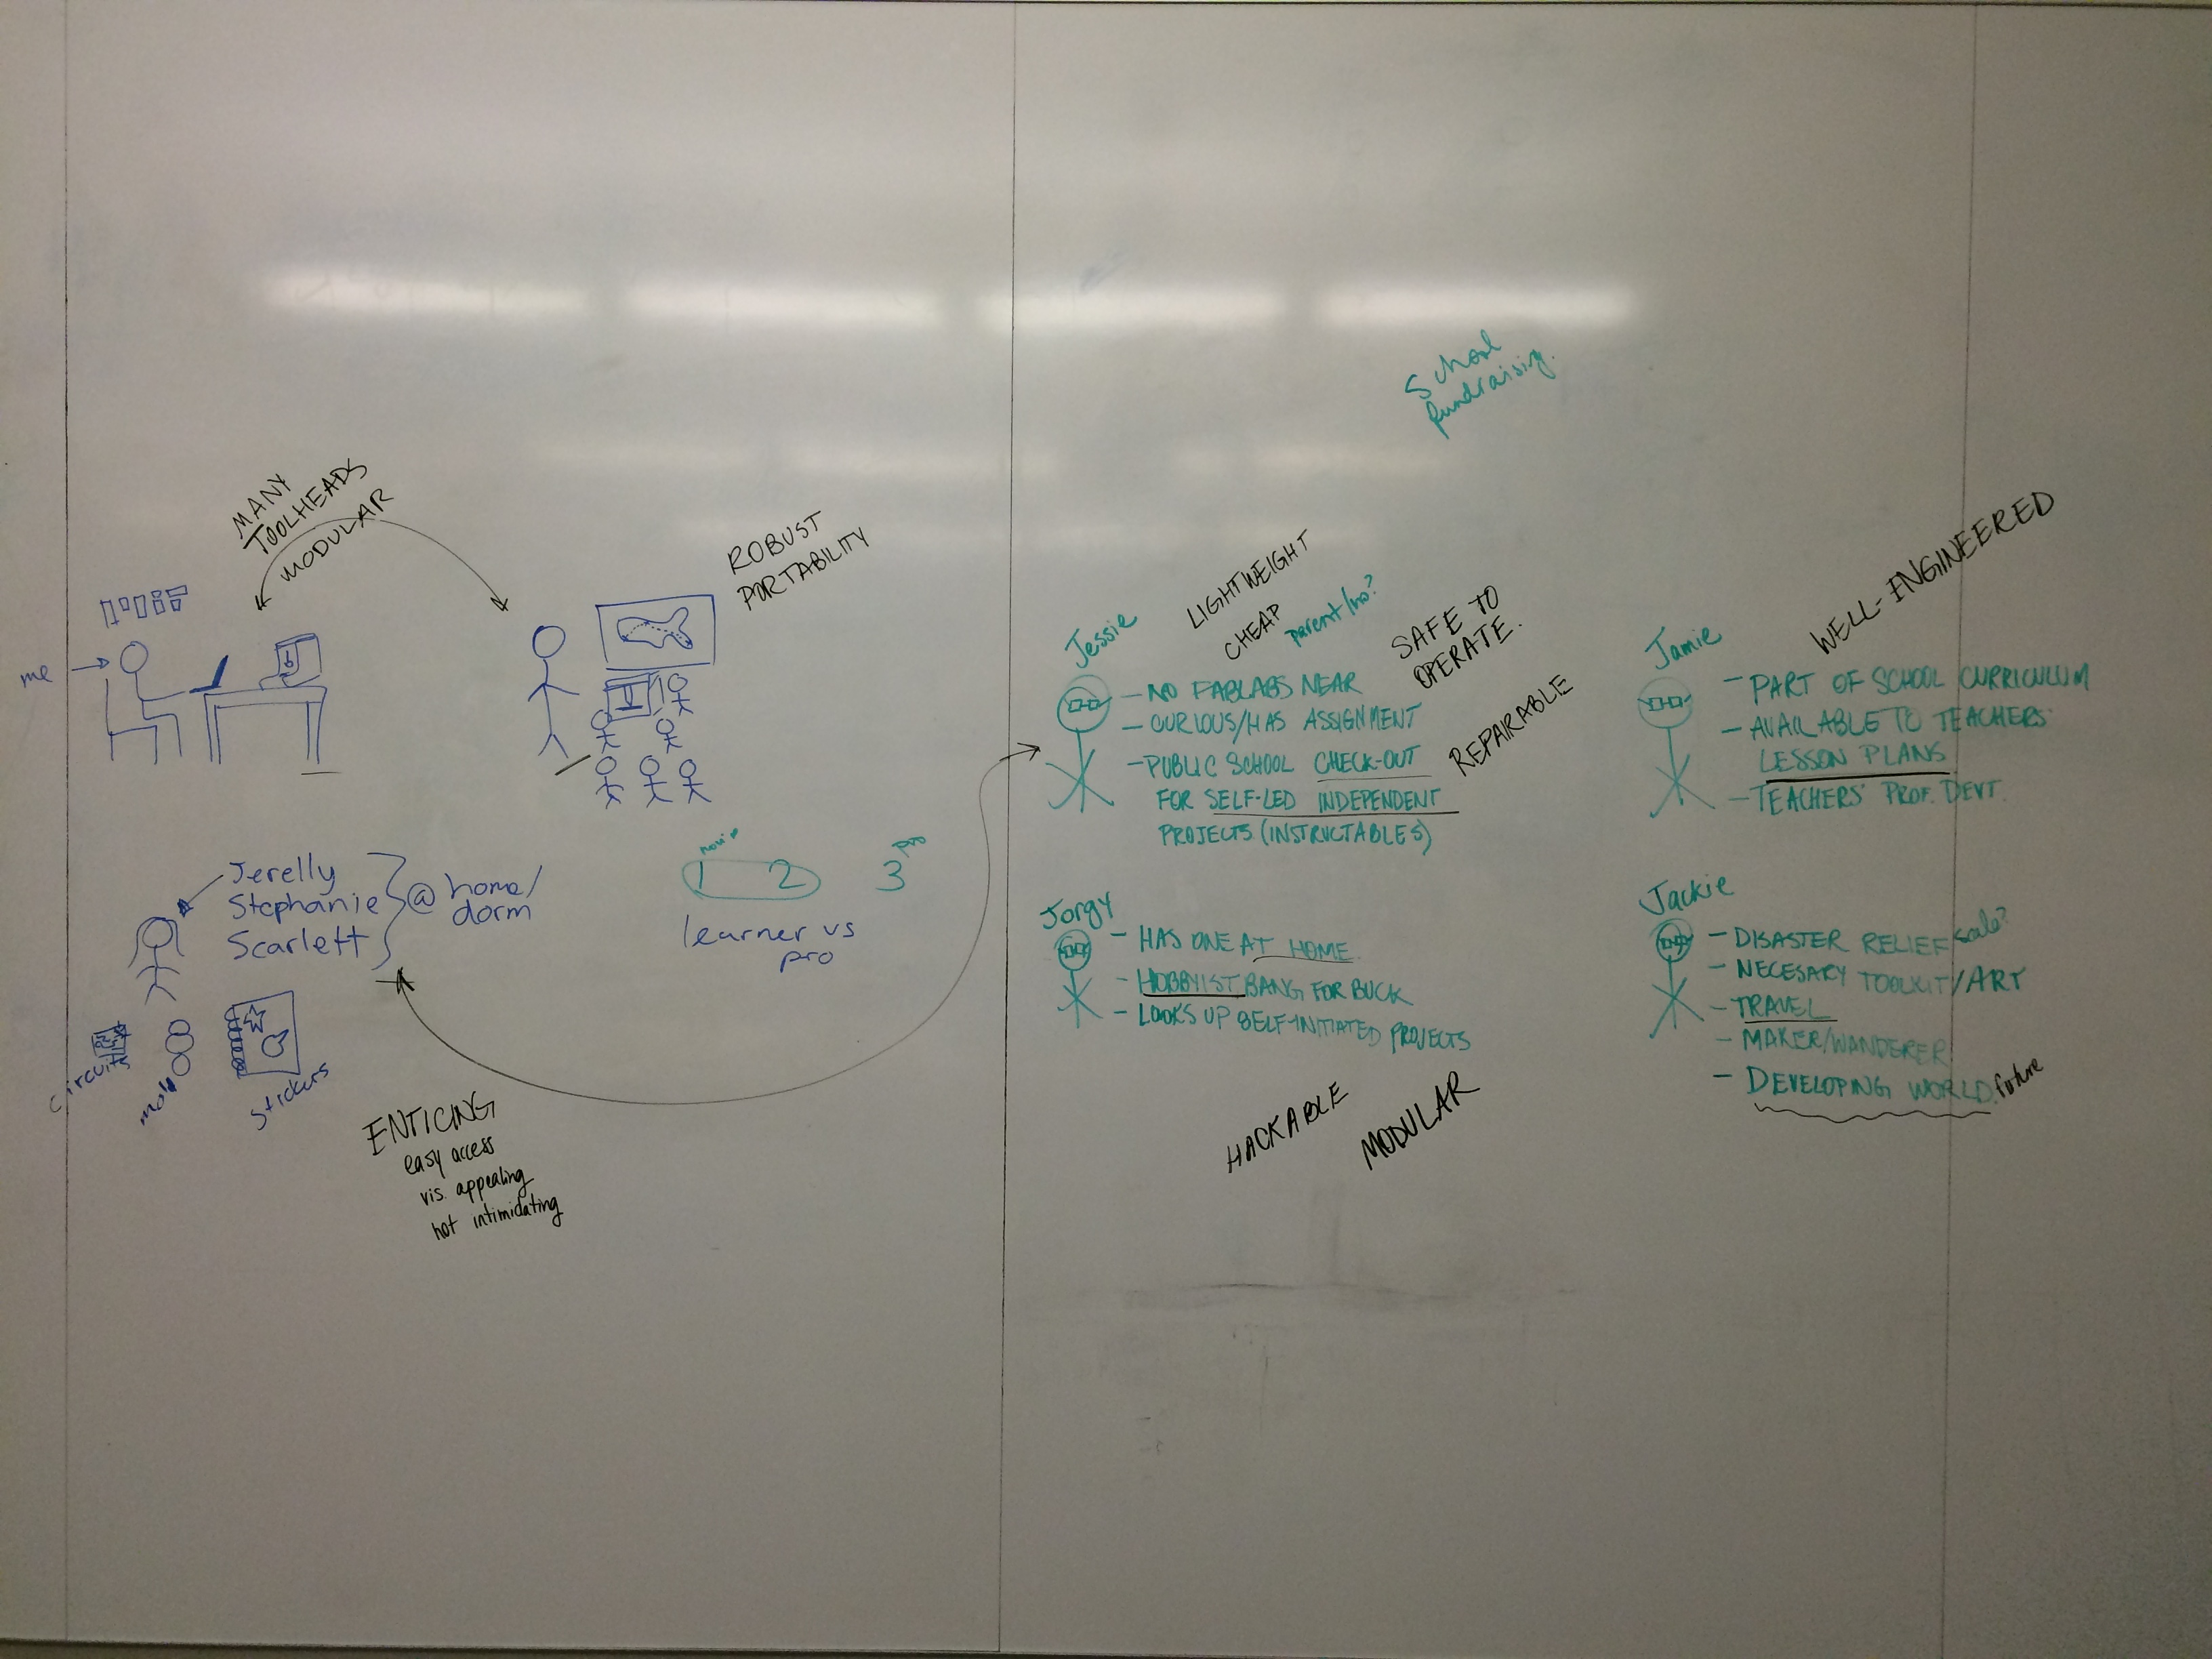 School
fundraising.
MANY
TOOLHEADS
MODULAR
ROBUST
PORTABILITY
me
Jerelly
Stephanie
Scarlett
@ home/
dorm
circuits
mold
stickers
ENTICING
easy access
vis. appealing
not intimidating
pro
1 2 3
learner vs
pro
LIGHTWEIGHT
CHEAP
parent/no?
SAFE TO
OPERATE.
REPAIRABLE
Jessie
- NO FABLABS NEAR
- CURIOUS/HAS ASSIGNMENT
- PUBLIC SCHOOL CHECK-OUT
FOR SELF-LED INDEPENDENT
PROJECTS (INSTRUCTABLES)
Jorgy
- HAS ONE AT HOME.
- HOBBYIST BANG FOR BUCK
- LOOKS UP SELF-INITIATED PROJECTS
HACKABLE
MODULAR
WELL-ENGINEERED
Jamie
- PART OF SCHOOL CURRICULUM
- AVAILABLE TO TEACHERS'
LESSON PLANS
- TEACHERS' PROF. DEVT.
Jackie
- DISASTER RELIEF scale?
- NECESARY TOOLKIT/ART
- TRAVEL
- MAKER/WANDERER
- DEVELOPING WORLD. future